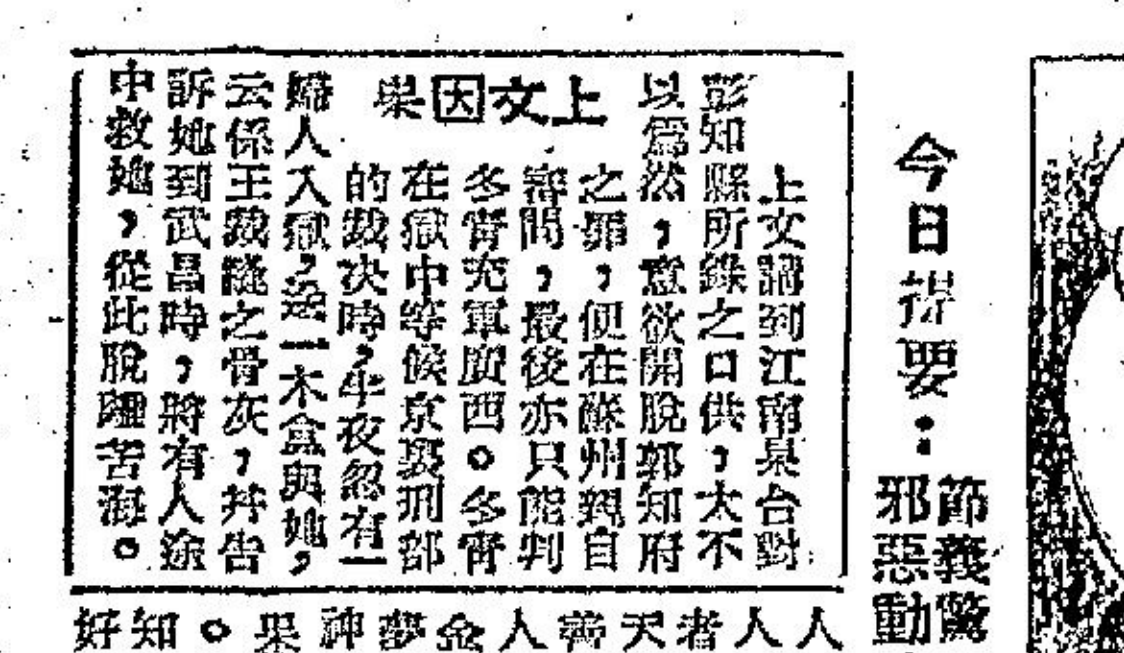 今日提要：
節義驚
邪惡動
上文因果
上文講到江南臬台對
彭知縣所錄之口供，太不
以爲然，意欲開脫郭知府
之罪，便在蘇州親自
審問，最後亦只能判
冬宵充軍廣西。冬宵
在獄中等候京裏刑部
的裁決時，半夜忽有一
婦人入獄，送一木盒與她，
云係王裁縫之骨灰，幷告
訴她到武昌時，將有人途
中救她，從此脫離苦海。
人
人
者
天
善
人
夢
神
果
。
知
好